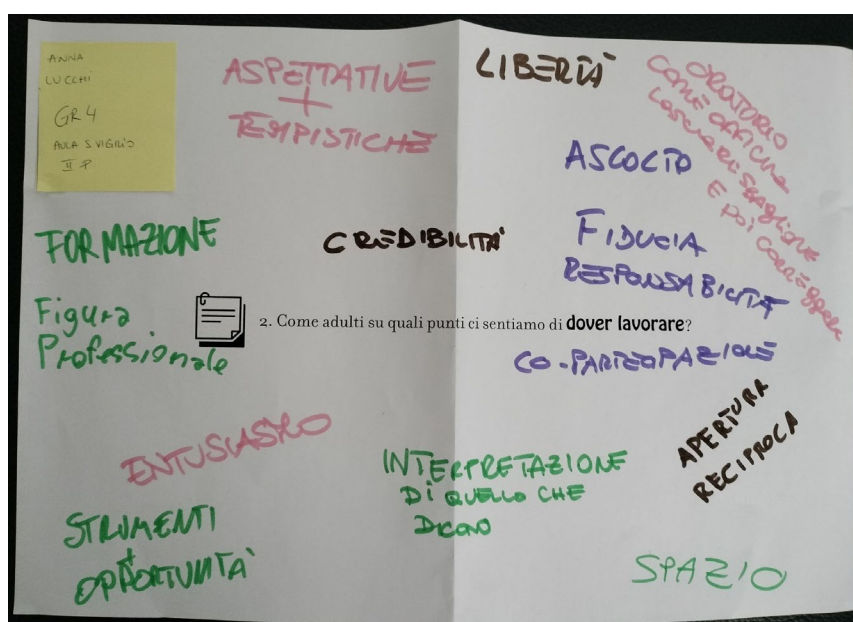 ANNA
LUCCHI
GR 4
AULA S VIGILIO
II P
ASPETTATIVE
+
TEMPISTICHE
LIBERTÀ
ORATORIO
COME OFFICINA
LASCIARE SBAGLIARE
E POI CORREGGERE
ASCOLTO
FORMAZIONE
CREDIBILITA'
FIDUCIA
RESPONSABILITA'
Figura
Professionale
2. Come adulti su quali punti ci sentiamo di dover lavorare?
CO-PARTECIPAZIONE
ENTUSIASMO
INTERPRETAZIONE
DI QUELLO CHE
DICONO
APERTURA
RECIPROCA
STRUMENTI
+
OPPORTUNITA'
SPAZIO